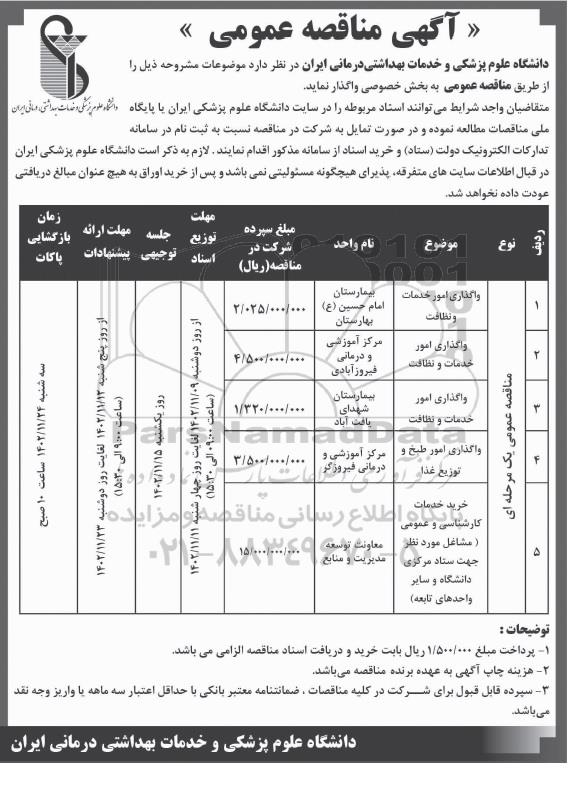 « آگهی مناقصه عمومی »
دانشگاه علوم پزشکی و خدمات بهداشتی، درمانی ایران
دانشگاه علوم پزشکی و خدمات بهداشتی‌درمانی ایران در نظر دارد موضوعات مشروحه ذیل را
از طریق مناقصه عمومی به بخش خصوصی واگذار نماید.
متقاضیان واجد شرایط می‌توانند اسناد مربوطه را در سایت دانشگاه علوم پزشکی ایران یا پایگاه
ملی مناقصات مطالعه نموده و در صورت تمایل به شرکت در مناقصه نسبت به ثبت نام در سامانه
تدارکات الکترونیک دولت (ستاد) و خرید اسناد از سامانه مذکور اقدام نمایند . لازم به ذکر است دانشگاه علوم پزشکی ایران
در قبال اطلاعات سایت های متفرقه، پذیرای هیچگونه مسئولیتی نمی باشد و پس از خرید اوراق به هیچ عنوان مبالغ دریافتی
عودت داده نخواهد شد.
ردیف نوع موضوع نام واحد مبلغ سپرده شرکت در مناقصه(ریال) مهلت توزیع اسناد جلسه توجیهی مهلت ارائه پیشنهادات زمان بازگشایی پاکات
مناقصه عمومی یک مرحله ای
۱ واگذاری امور خدمات و نظافت بیمارستان امام حسین (ع) بهارستان ۲/۰۲۵/۰۰۰/۰۰۰
۲ واگذاری امور خدمات و نظافت مرکز آموزشی و درمانی فیروزآبادی ۴/۵۰۰/۰۰۰/۰۰۰
۳ واگذاری امور خدمات و نظافت بیمارستان شهدای یافت آباد ۱/۳۲۰/۰۰۰/۰۰۰
۴ واگذاری امور طبخ و توزیع غذا مرکز آموزشی و درمانی فیروزگر ۳/۵۰۰/۰۰۰/۰۰۰
۵ خرید خدمات کارشناسی و عمومی ( مشاغل مورد نظر جهت ستاد مرکزی دانشگاه و سایر واحدهای تابعه) معاونت توسعه مدیریت و منابع ۱۵/۰۰۰/۰۰۰/۰۰۰
از روز دوشنبه ۱۴۰۲/۱۱/۰۹ لغایت روز چهار شنبه ۱۴۰۲/۱۱/۱۱
(ساعت ۰۹:۰۰ الی ۱۵:۳۰)
روز یکشنبه ۱۴۰۲/۱۱/۱۵
از روز پنج شنبه ۱۴۰۲/۱۱/۱۲ لغایت روز دوشنبه ۱۴۰۲/۱۱/۲۳
(ساعت ۹:۰۰ الی ۱۵:۳۰)
سه شنبه ۱۴۰۲/۱۱/۲۴ ساعت ۱۰ صبح
ParsNamadData
پایگاه اطلاع رسانی مناقصه و مزایده
۰۲۱-۸۸۳۴۹۶۷۰-۵
توضیحات :
۱- پرداخت مبلغ ۱/۵۰۰/۰۰۰ ریال بابت خرید و دریافت اسناد مناقصه الزامی می باشد.
۲- هزینه چاپ آگهی به عهده برنده مناقصه می‌باشد.
۳- سپرده قابل قبول برای شرکت در کلیه مناقصات ، ضمانتنامه معتبر بانکی با حداقل اعتبار سه ماهه یا واریز وجه نقد
می‌باشد.
دانشگاه علوم پزشکی و خدمات بهداشتی درمانی ایران